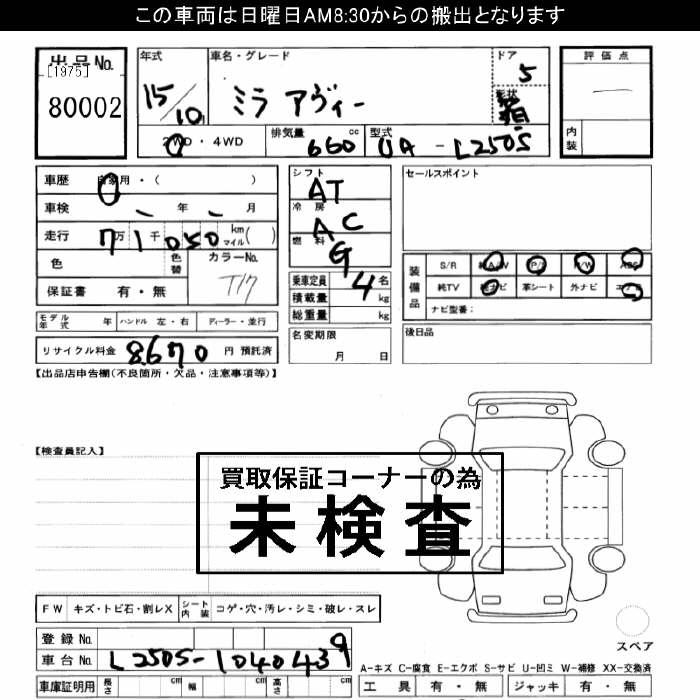 この車両は日曜日AM8:30からの搬出となります
出品No.
[1975]
80002
年式
15/10
車名・グレード
ミラ アヴィー
ドア
5
形状
箱
評価点
―
内装
2WD・4WD
排気量
660 cc
型式
UA - L250S
車歴 自家用・( )
車検 - 年 - 月
走行 7万1千050 km マイル( )
色 色替 カラーNo.
T17
保証書 有・無
シフト
AT
冷房
AC
燃料
G
乗車定員 4 名
積載量 kg
総重量 kg
セールスポイント
装備品
S/R 純A/W P/S P/W ABS
純TV 純ナビ 革シート 外ナビ エアB
ナビ型番:
モデル年式 年 ハンドル 左・右 ディーラー・並行
名変期限
月 日
後日品
リサイクル料金 8670 円 預託済
【出品店申告欄(不良箇所・欠品・注意事項等)】
【検査員記入】
買取保証コーナーの為
未検査
FW キズ・トビ石・割レX シート内装 コゲ・穴・汚レ・シミ・破レ・スレ
スペア
登録No.
車台No. L250S-1040439
A-キズ C-腐食 E-エクボ S-サビ U-凹ミ W-補修 XX-交換済
車庫証明用 長さ cm 幅 cm 高さ cm
工具 有・無 ジャッキ 有・無